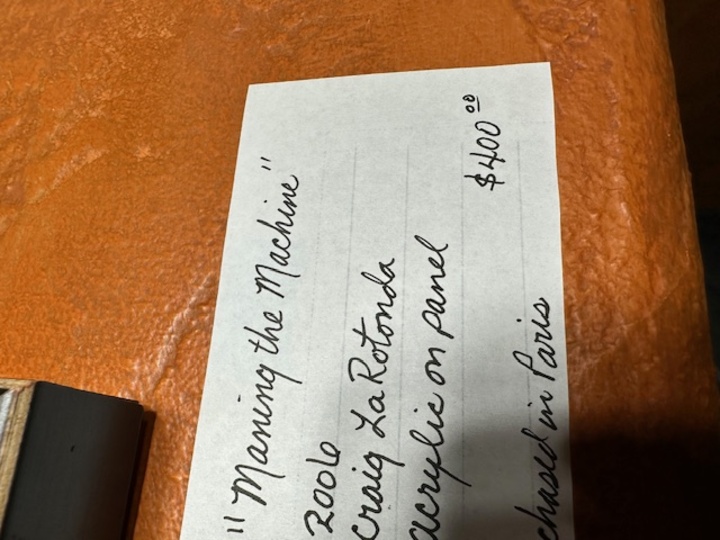 "Maning the Machine"
2006
Craig LaRotonda
acrylic on panel
$400.00
chased in Paris